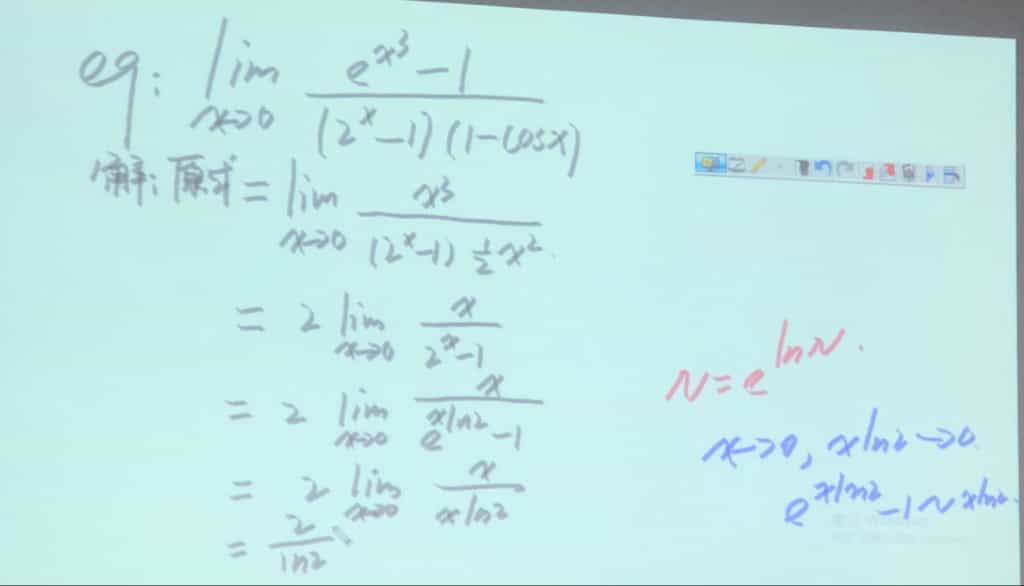 eg: lim x→0 (e^{x^3} - 1) / ((2^x - 1)(1 - cosx))
解:原式 = lim x→0 x^3 / ((2^x - 1) 1/2 x^2)
= 2 lim x→0 x / (2^x - 1)
= 2 lim x→0 x / (e^{xln2} - 1)
= 2 lim x→0 x / (xln2)
= 2 / ln2
N = e^{lnN}.
x→0, xln2→0
e^{xln2} - 1 ~ xln2.